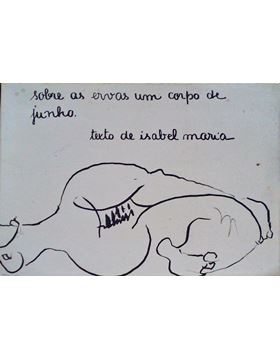 sobre as ervas um corpo de
junho.
texto de isabel maria